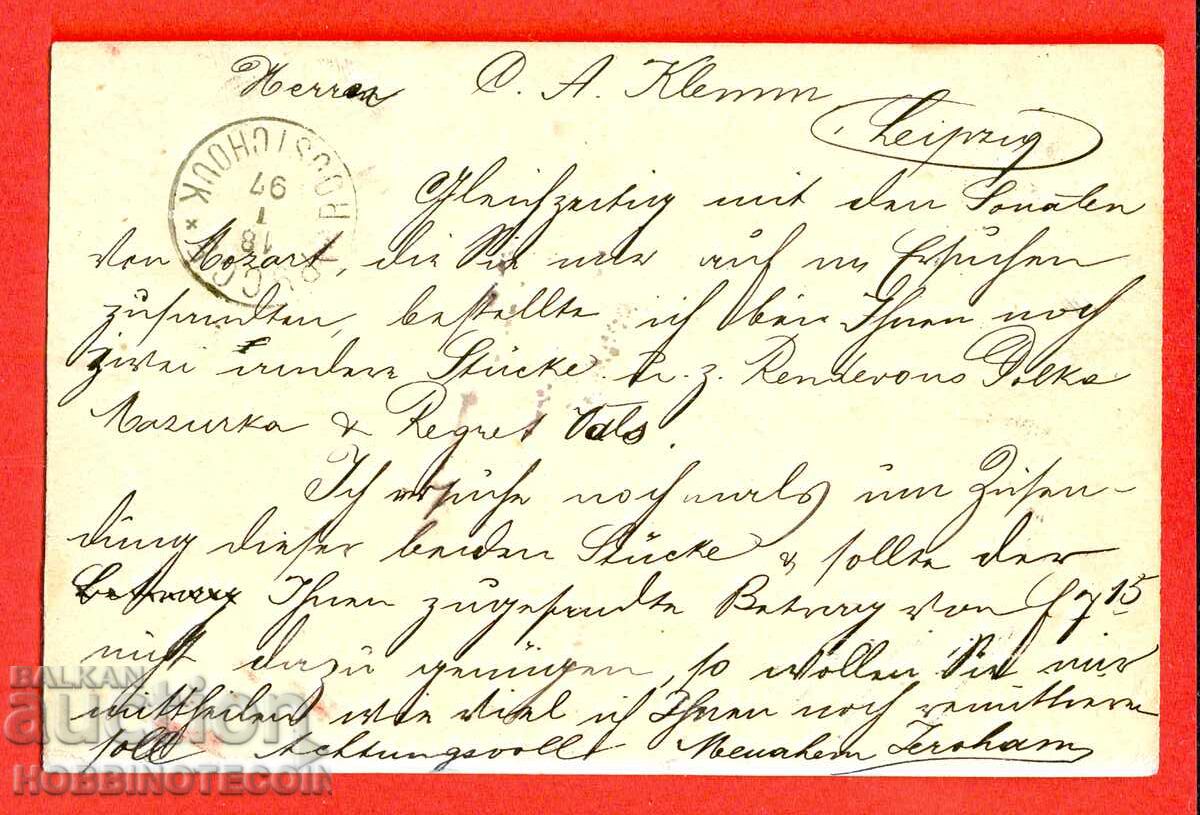 Herren C. A. Klemm
Leipzig
ROUSTCHOUK
18
I
97
Gleichzeitig mit den Sonaten
von Mozart, die Sie mir auf m Ersuchen
zusandten, bestellte ich bei Ihnen noch
zwei andere Stücke u. z. Rendevous Polka
Mazurka & Regret Vals.
Ich ersuche nochmals um Zusen-
dung dieser beiden Stücke & sollte der
Betrag Ihnen zugesandte Betrag von f 7 15
nicht dazu genügen, so wollen Sie mir
mittheilen wie viel ich Ihnen noch remittieren
soll Achtungsvoll Menahem Jeroham
BALKAN
auction
HOBBINOTECOIN